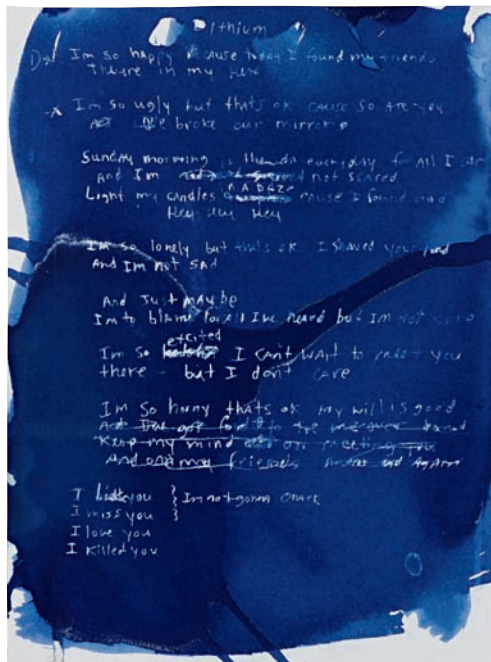 Lithium
Im so happy cause today I found my friends
Theyre in my
Im so ugly but thats ok cause so are you
We broke our mirrors
Sunday morning is everyday for All I care
And Im not scared
Light my candles in A DAZE cause I found
Hey Hey Hey
Im so lonely but thats ok I shaved your
And Im not SAD
And Just MAybe
Im to blame for All Ive heard but Im not
excited
Im so I cant WAit to meet you
there - but I don't care
Im So horny thats ok my will is good
Keep my mind on meeting you
And my friends and Again
I like you } Im not gonna CRACK
I miss you }
I love you
I killed you